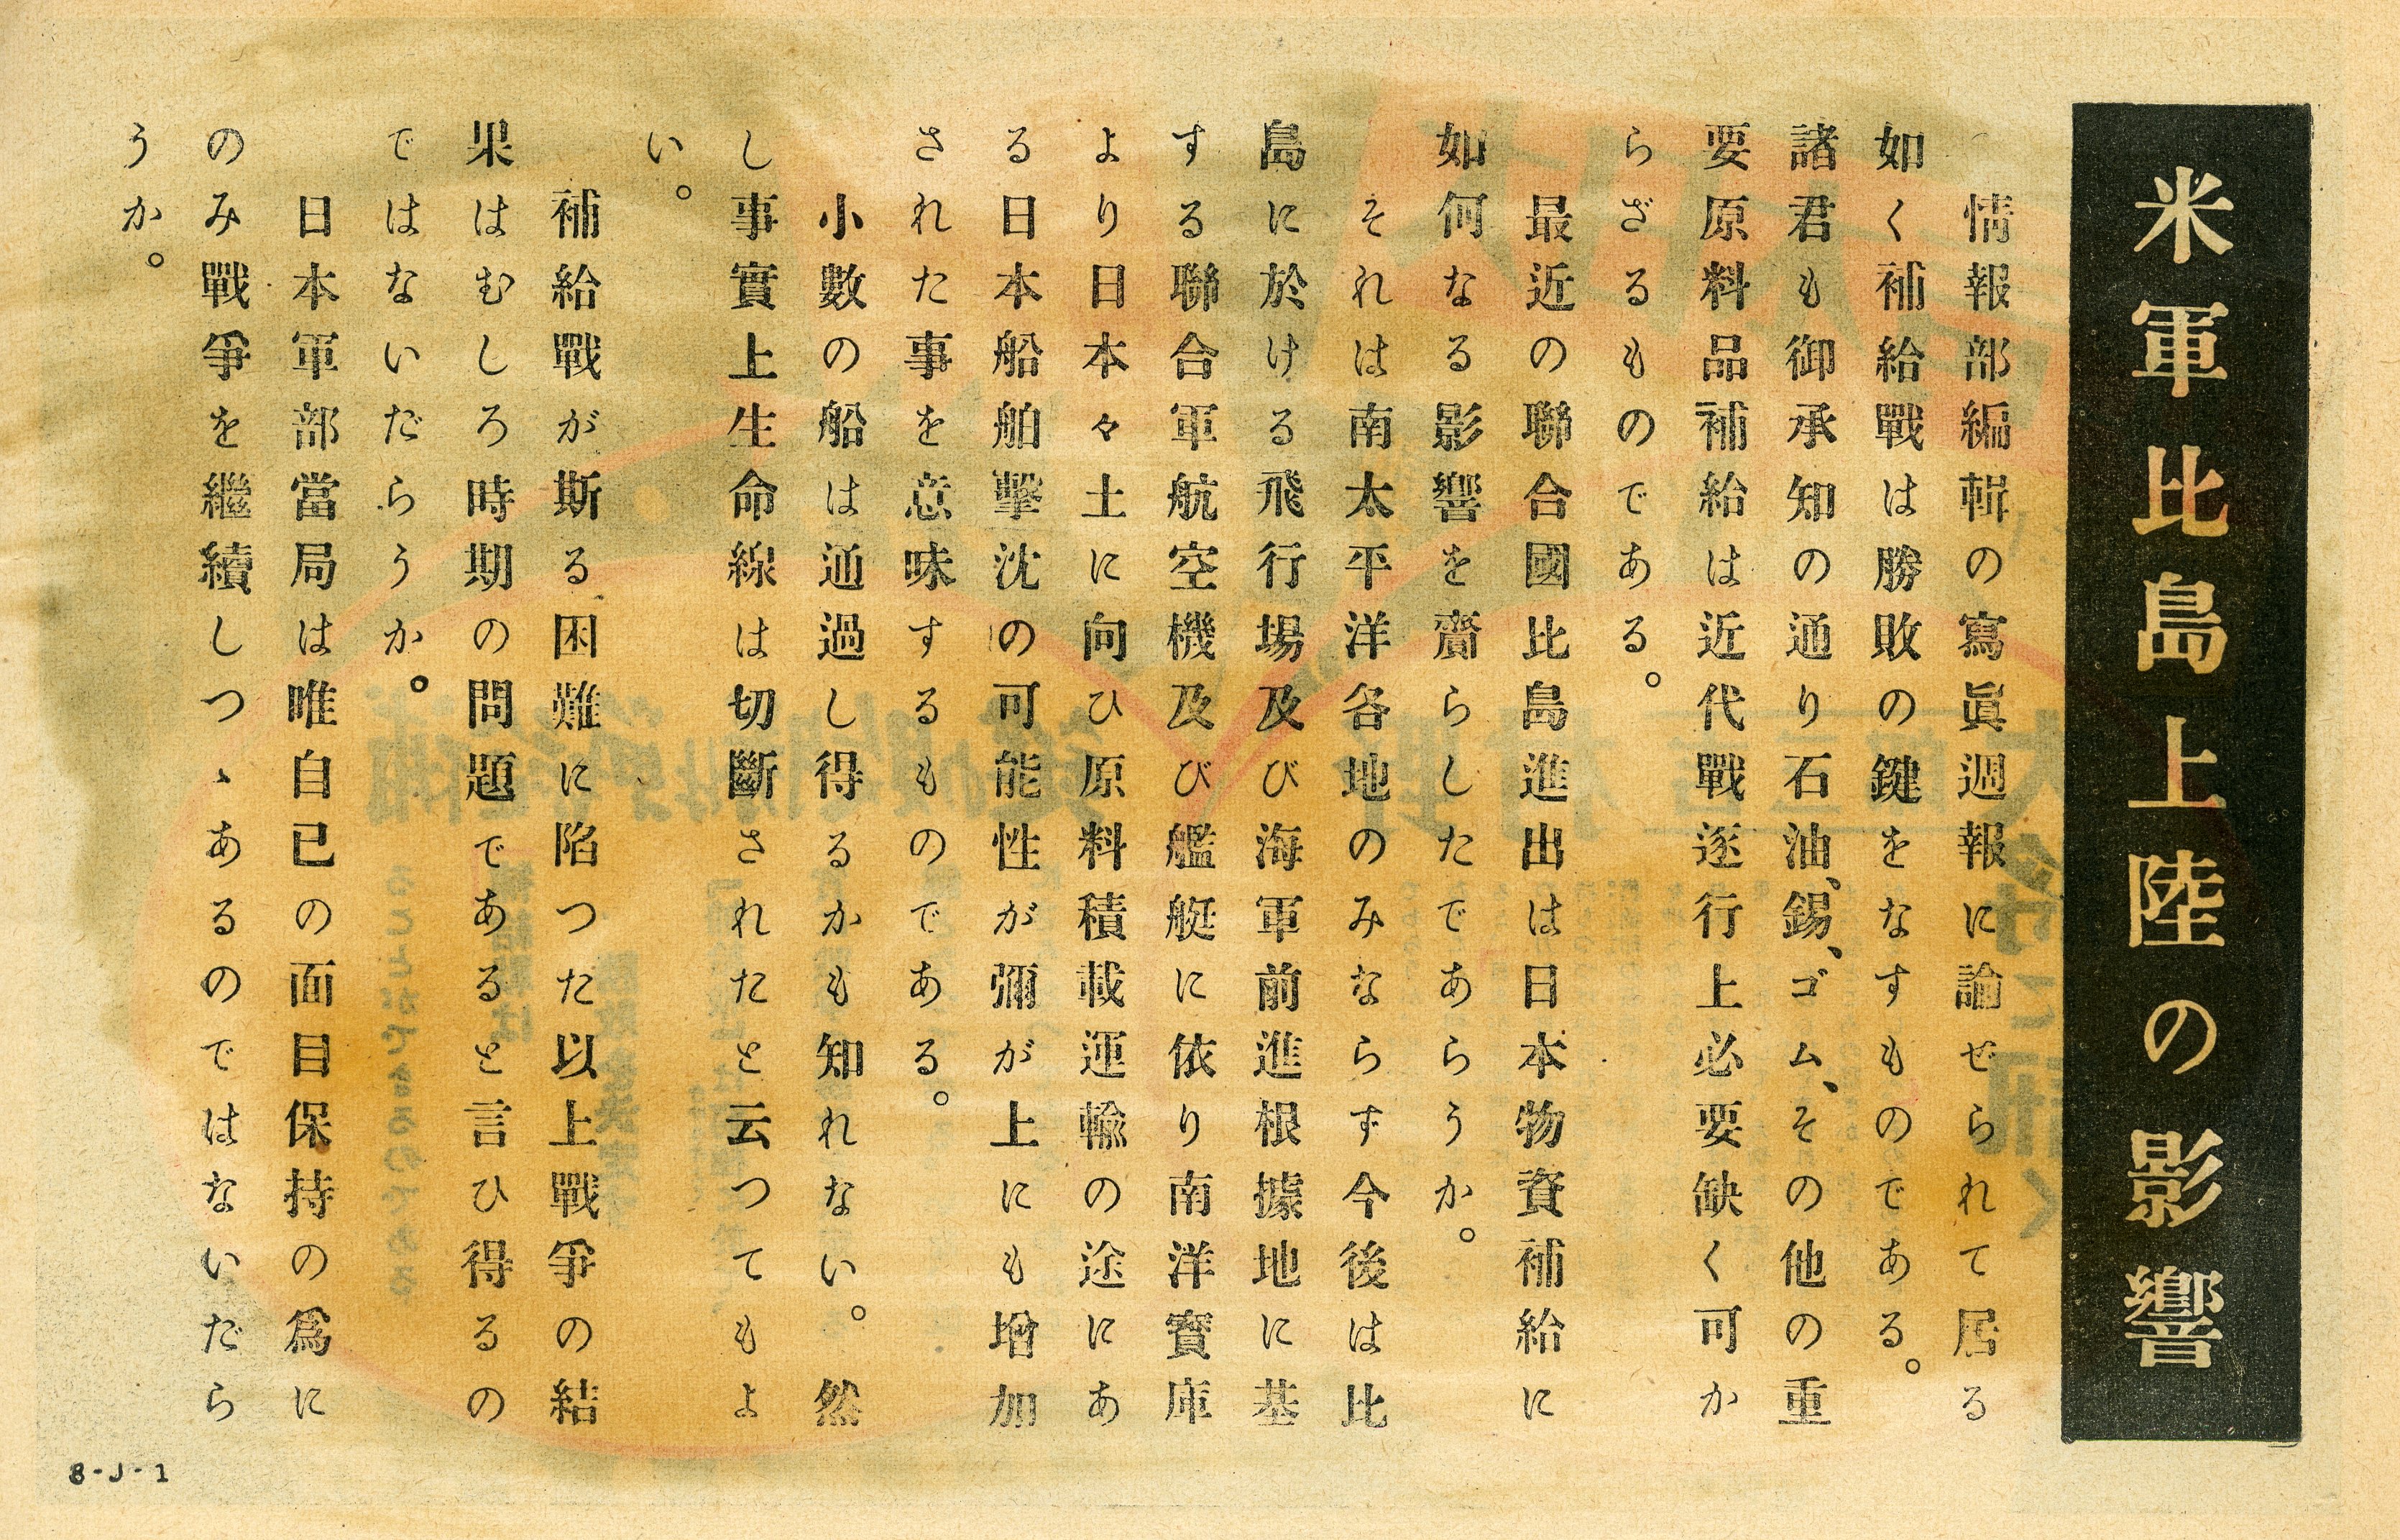 米軍比島上陸の影響
情報部編輯の寫眞週報に論ぜられて居る
如く補給戰は勝敗の鍵をなすものである。
諸君も御承知の通り石油、錫、ゴム、その他の重
要原料品補給は近代戰逐行上必要缺く可か
らざるものである。
最近の聯合國比島進出は日本物資補給に
如何なる影響を齎らしたであらうか。
それは南太平洋各地のみならす今後は比
島に於ける飛行場及び海軍前進根據地に基
する聯合軍航空機及び艦艇に依り南洋寶庫
より日本々土に向ひ原料積載運輸の途にあ
る日本船舶擊沈の可能性が彌が上にも增加
された事を意味するものである。
小數の船は通過し得るかも知れない。然
し事實上生命線は切斷されたと云つてもよ
い。
補給戰が斯る困難に陷つた以上戰爭の結
果はむしろ時期の問題であると言ひ得るの
ではないだらうか。
日本軍部當局は唯自已の面目保持の爲に
のみ戰爭を繼續しつゝあるのではないだら
うか。
8-J-1